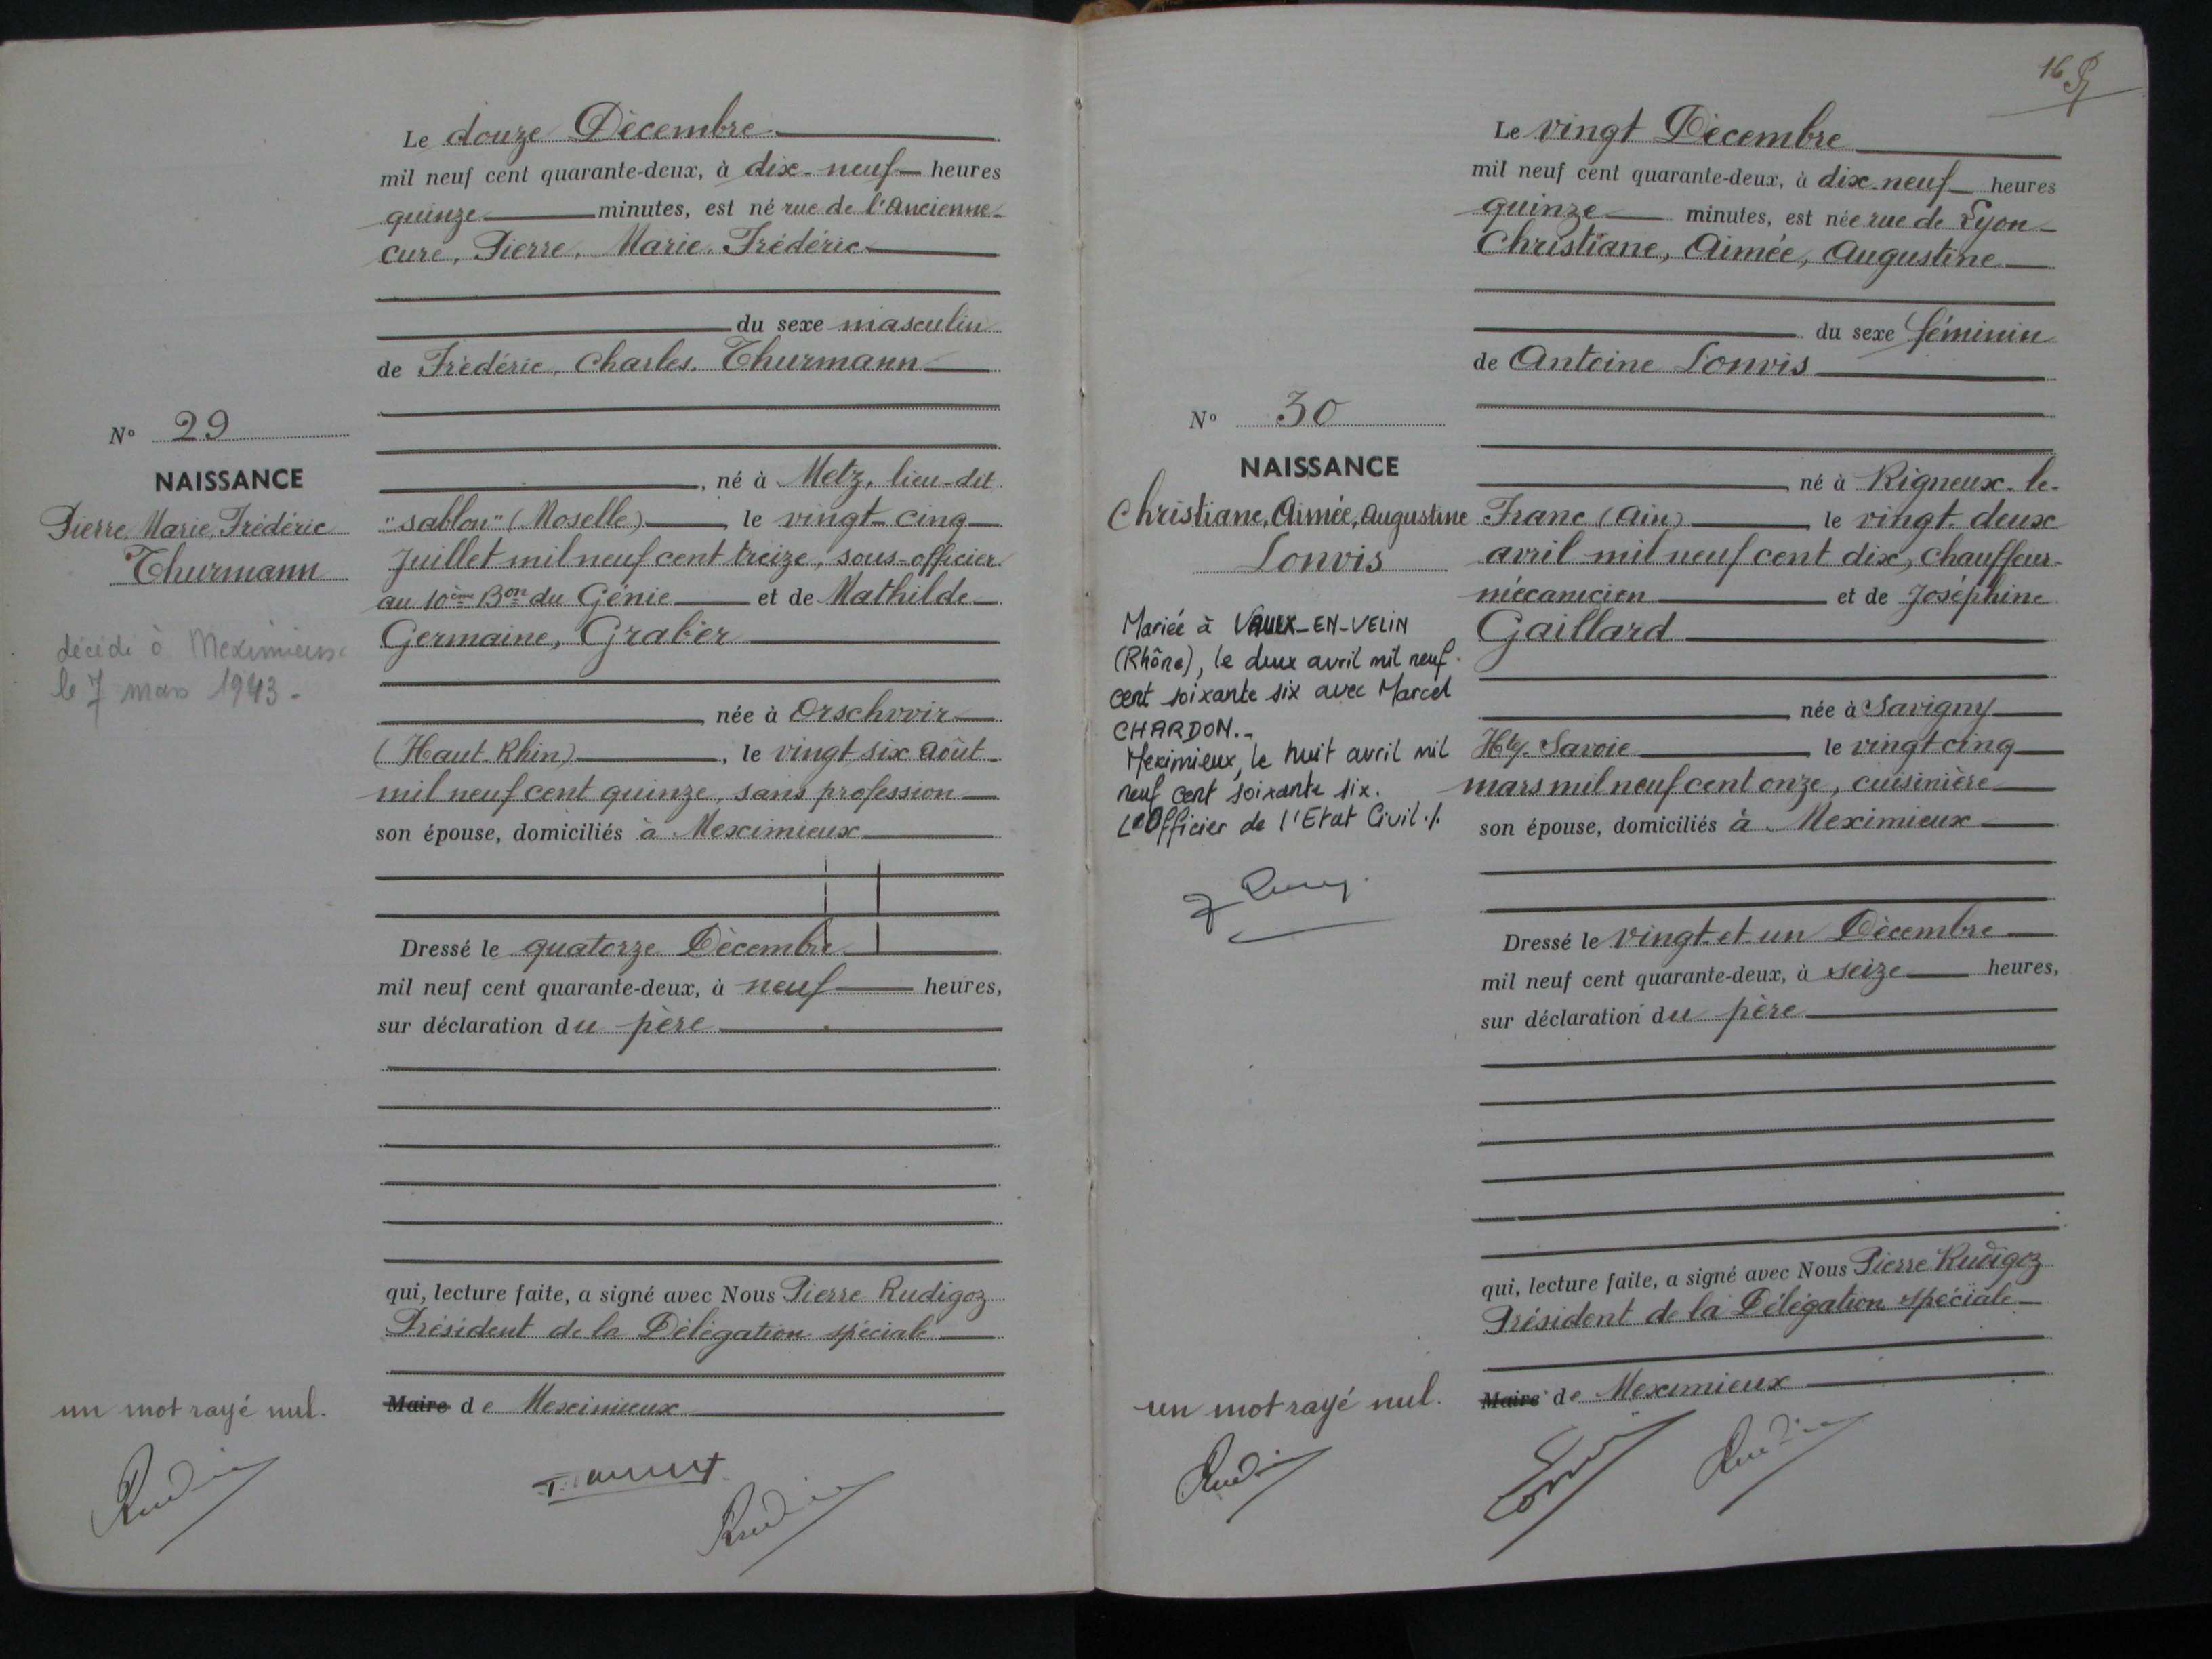 Le douze Décembre
mil neuf cent quarante-deux, à dix-neuf heures
quinze minutes, est né rue de l'Ancienne-
cure, Pierre, Marie, Frédéric
du sexe masculin
de Frédéric, Charles, Thurmann
N° 29
NAISSANCE
Pierre, Marie, Frédéric
Thurmann
décédé à Meximieux
le 7 mars 1943.
, né à Metz, lieu-dit
"sablon" (Moselle), le vingt-cinq
Juillet mil neuf cent treize, sous-officier
au 10ème Bon du Génie et de Mathilde
Germaine, Graber
née à Orschwir
(Haut-Rhin), le vingt six Août
mil neuf cent quinze, sans profession
son épouse, domiciliés à Meximieux
Dressé le quatorze Décembre
mil neuf cent quarante-deux, à neuf heures,
sur déclaration du père
qui, lecture faite, a signé avec Nous Pierre Rudigoz
Président de la Délégation spéciale
Maire de Meximieux
un mot rayé nul.
16
Le vingt Décembre
mil neuf cent quarante-deux, à dix-neuf heures
quinze minutes, est née rue de Lyon
Christiane, Aimée, Augustine
du sexe féminin
de Antoine Lonvis
N° 30
NAISSANCE
Christiane, Aimée, Augustine
Lonvis
Mariée à VAULX-EN-VELIN
(Rhône), le deux avril mil neuf
cent soixante six avec Marcel
CHARDON.-
Meximieux, le huit avril mil
neuf cent soixante six.
L'Officier de l'Etat Civil./.
né à Rigneux-le-
Franc (Ain) le vingt-deux
avril mil neuf cent dix, chauffeur-
mécanicien et de Joséphine
Gaillard
née à Savigny
Hte Savoie le vingt cinq
mars mil neuf cent onze, cuisinière
son épouse, domiciliés à Meximieux
Dressé le vingt-et-un Décembre
mil neuf cent quarante-deux, à seize heures,
sur déclaration du père
qui, lecture faite, a signé avec Nous Pierre Rudigoz
Président de la Délégation spéciale
Maire de Meximieux
un mot rayé nul.